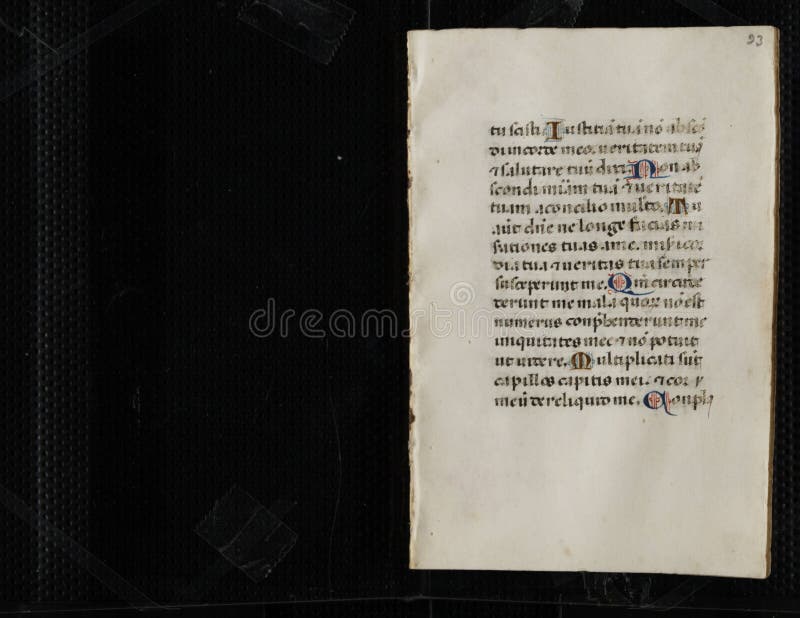 93
tu scisti. Iustitiā tuā nō absco
di in corde meo. ueritatem tuā
⁊ salutare tuū dixi. Non ab
scondi mīam tuā ⁊ ueritatē
tuam a concilio multo. Tu
aūt dn̄e ne longe facias mi
sationes tuas a me. misicor
dia tua ⁊ ueritas tua semper
susceperunt me. Qm̄ circūde
derunt me mala quorꝫ nō est
numerus conp̄henderunt me
iniquitates mee ⁊ nō potui
ut uidere. Multiplicati sūt
capillos capitis mei. ⁊ cor
meū dereliquid me. Conpla
dreamstime